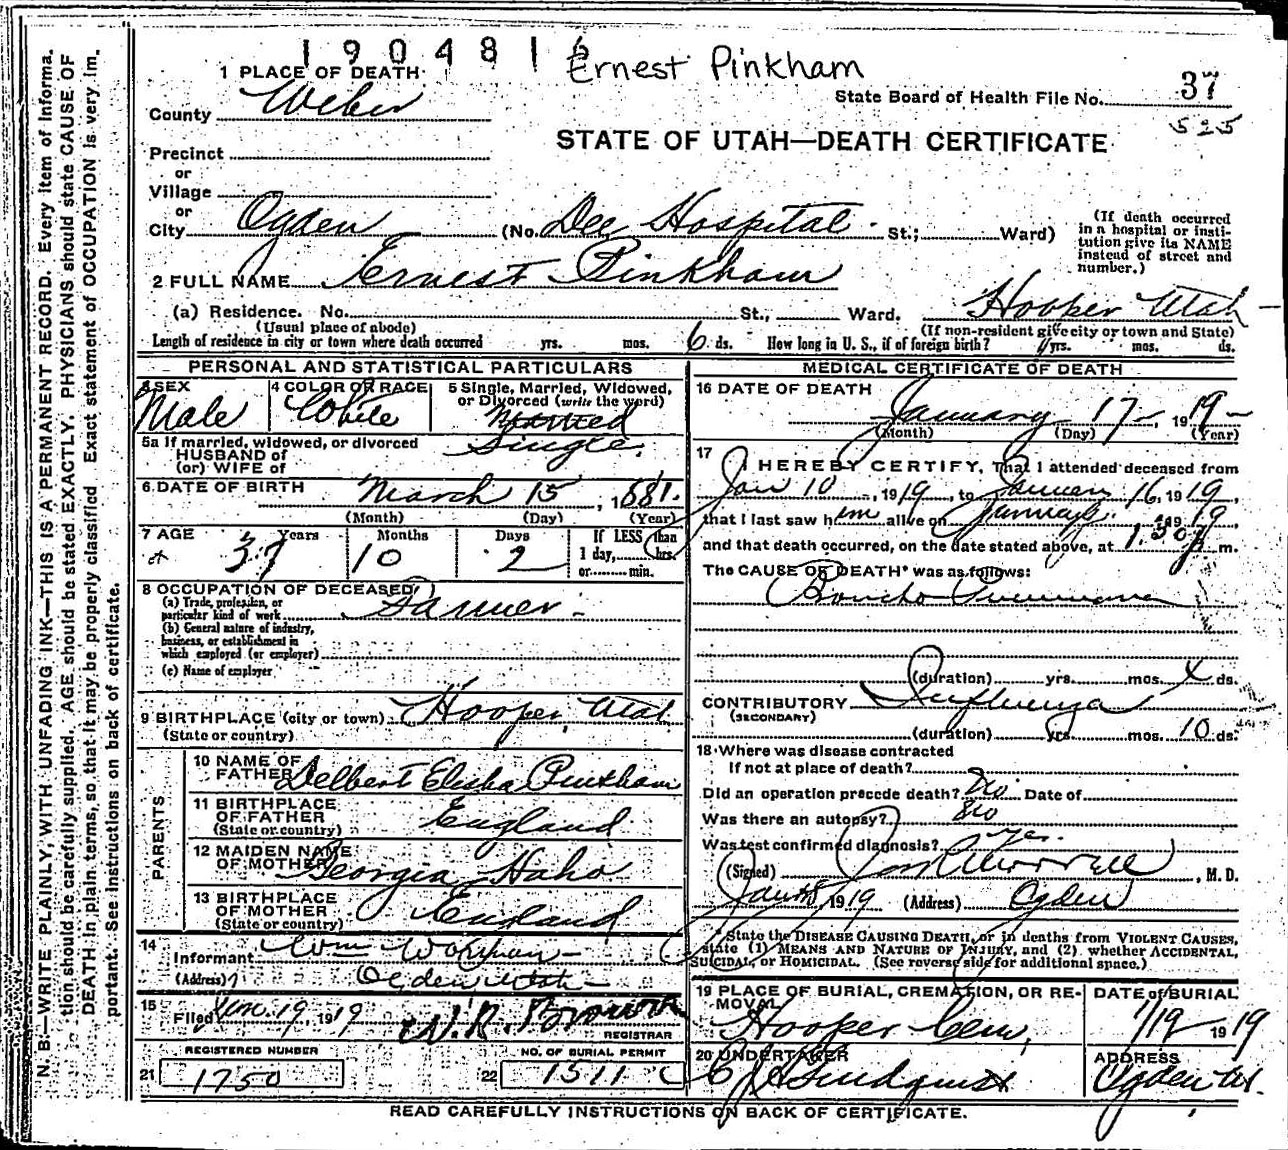 1904816 Ernest Pinkham
1 PLACE OF DEATH
County Weber
State Board of Health File No. 37
525
STATE OF UTAH—DEATH CERTIFICATE
Precinct
or
Village
or
City Ogden (No. Dee Hospital St.; Ward)
(If death occurred in a hospital or insti-tution give its NAME instead of street and number.)
2 FULL NAME Ernest Pinkham
(a) Residence. No. St., Ward. Hooper Utah
(Usual place of abode) (If non-resident give city or town and State)
Length of residence in city or town where death occurred yrs. mos. 6 ds. How long in U. S., if of foreign birth? yrs. mos. ds.
PERSONAL AND STATISTICAL PARTICULARS
3 SEX Male
4 COLOR OR RACE White
5 Single, Married, Widowed, or Divorced (write the word) Married Single.
5a If married, widowed, or divorced
HUSBAND of
(or) WIFE of
6 DATE OF BIRTH March 15, 1881.
(Month) (Day) (Year)
7 AGE 37 Years 10 Months 2 Days
If LESS than 1 day, hrs. or min.
8 OCCUPATION OF DECEASED
(a) Trade, profession, or particular kind of work Farmer -
(b) General nature of industry, business, or establishment in which employed (or employer)
(c) Name of employer
9 BIRTHPLACE (city or town) Hooper, Utah
(State or country)
PARENTS
10 NAME OF FATHER Delbert Elisha Pinkham
11 BIRTHPLACE OF FATHER England
(State or country)
12 MAIDEN NAME OF MOTHER Georgia Hahs
13 BIRTHPLACE OF MOTHER England
(State or country)
14 Informant Wm Workman
(Address) Ogden Utah
15 Filed Jan. 19, 1919 REGISTRAR
REGISTERED NUMBER
21 1750
NO. OF BURIAL PERMIT
22 1511 C
MEDICAL CERTIFICATE OF DEATH
16 DATE OF DEATH January 17-, 1919-
(Month) (Day) (Year)
17 I HEREBY CERTIFY, That I attended deceased from
Jan 10, 1919, to January 16, 1919,
that I last saw him alive on 1919,
and that death occurred, on the date stated above, at 1.30 m.
The CAUSE OF DEATH* was as follows:
Broncho Pneumonia
(duration) yrs. mos. ds.
CONTRIBUTORY Influenza
(SECONDARY)
(duration) yrs. mos. 10 ds.
18 Where was disease contracted
If not at place of death?
Did an operation precede death? No Date of
Was there an autopsy? No
Was test confirmed diagnosis? Yes.
(Signed) Jos R Morrell, M. D.
1919 (Address) Ogden
*State the DISEASE CAUSING DEATH, or in deaths from VIOLENT CAUSES,
state (1) MEANS AND NATURE OF INJURY, and (2) whether ACCIDENTAL,
SUICIDAL, or HOMICIDAL. (See reverse side for additional space.)
19 PLACE OF BURIAL, CREMATION, OR RE-MOVAL Hooper Cem,
DATE of BURIAL 1/19 1919
20 UNDERTAKER Lindquist
ADDRESS Ogden Ut.
READ CAREFULLY INSTRUCTIONS ON BACK OF CERTIFICATE.
N. B.—WRITE PLAINLY, WITH UNFADING INK—THIS IS A PERMANENT RECORD. Every item of informa-
tion should be carefully supplied. AGE should be stated EXACTLY. PHYSICIANS should state CAUSE OF
DEATH in plain terms, so that it may be properly classified. Exact statement of OCCUPATION is very im-
portant. See instructions on back of certificate.